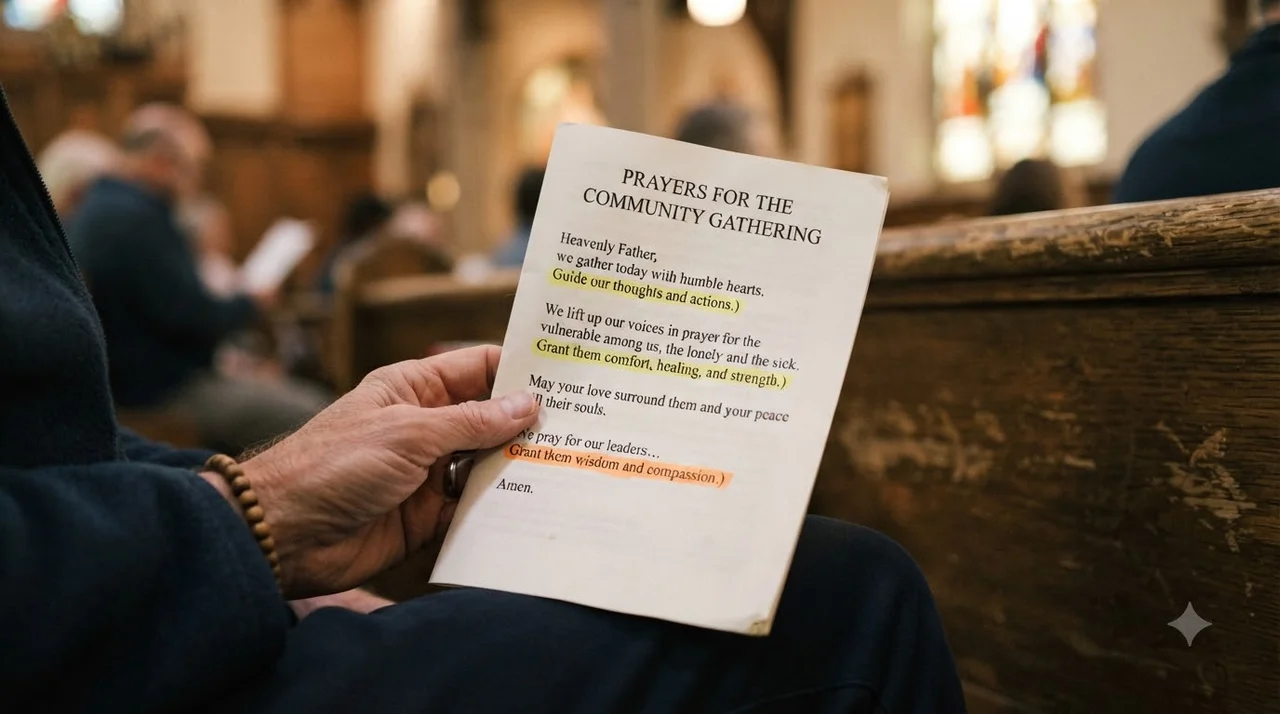 PRAYERS FOR THE
COMMUNITY GATHERING
Heavenly Father,
we gather today with humble hearts.
Guide our thoughts and actions.)
We lift up our voices in prayer for the
vulnerable among us, the lonely and the sick.
Grant them comfort, healing, and strength.)
May your love surround them and your peace
their souls.
pray for our leaders…
Grant them wisdom and compassion.)
Amen.